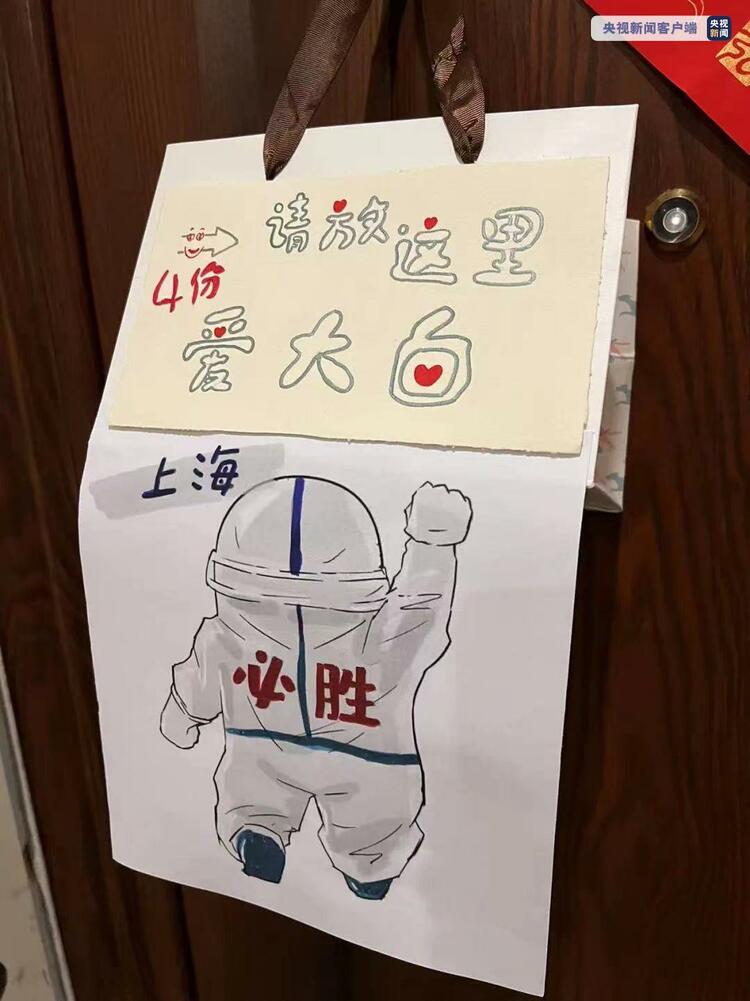 央视新闻客户端
央视
新闻
请放这里
4份
爱大白
上海
必胜